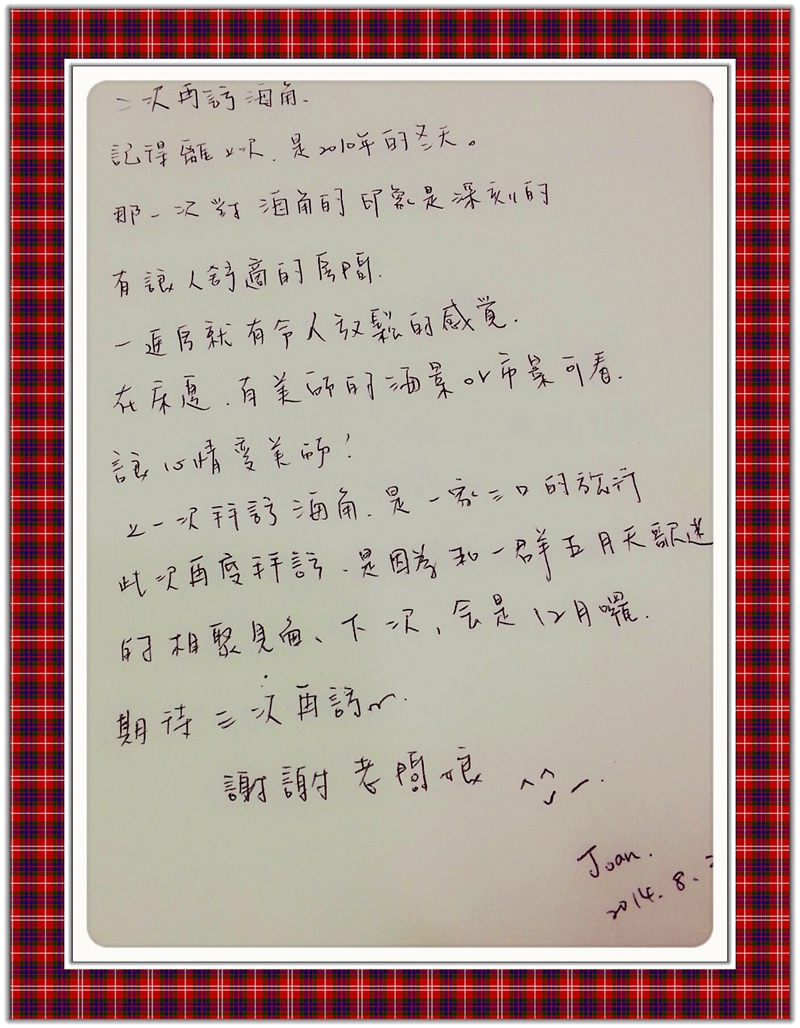 二次再訪海角.
記得離上次.是2010年的冬天。
那一次對海角的印象是深刻的
有讓人舒適的房間.
一進房就有令人放鬆的感覺.
在床邊.有美麗的海景or市景可看.
讓心情愛美麗!
上一次拜訪海角.是一家三口的旅行
此次再度拜訪、是因為和一群五月天歌迷
的相聚見面、下次,會是12月囉.
期待三次再訪~.
謝謝老闆娘 ^_^
Joan.
2014.8.